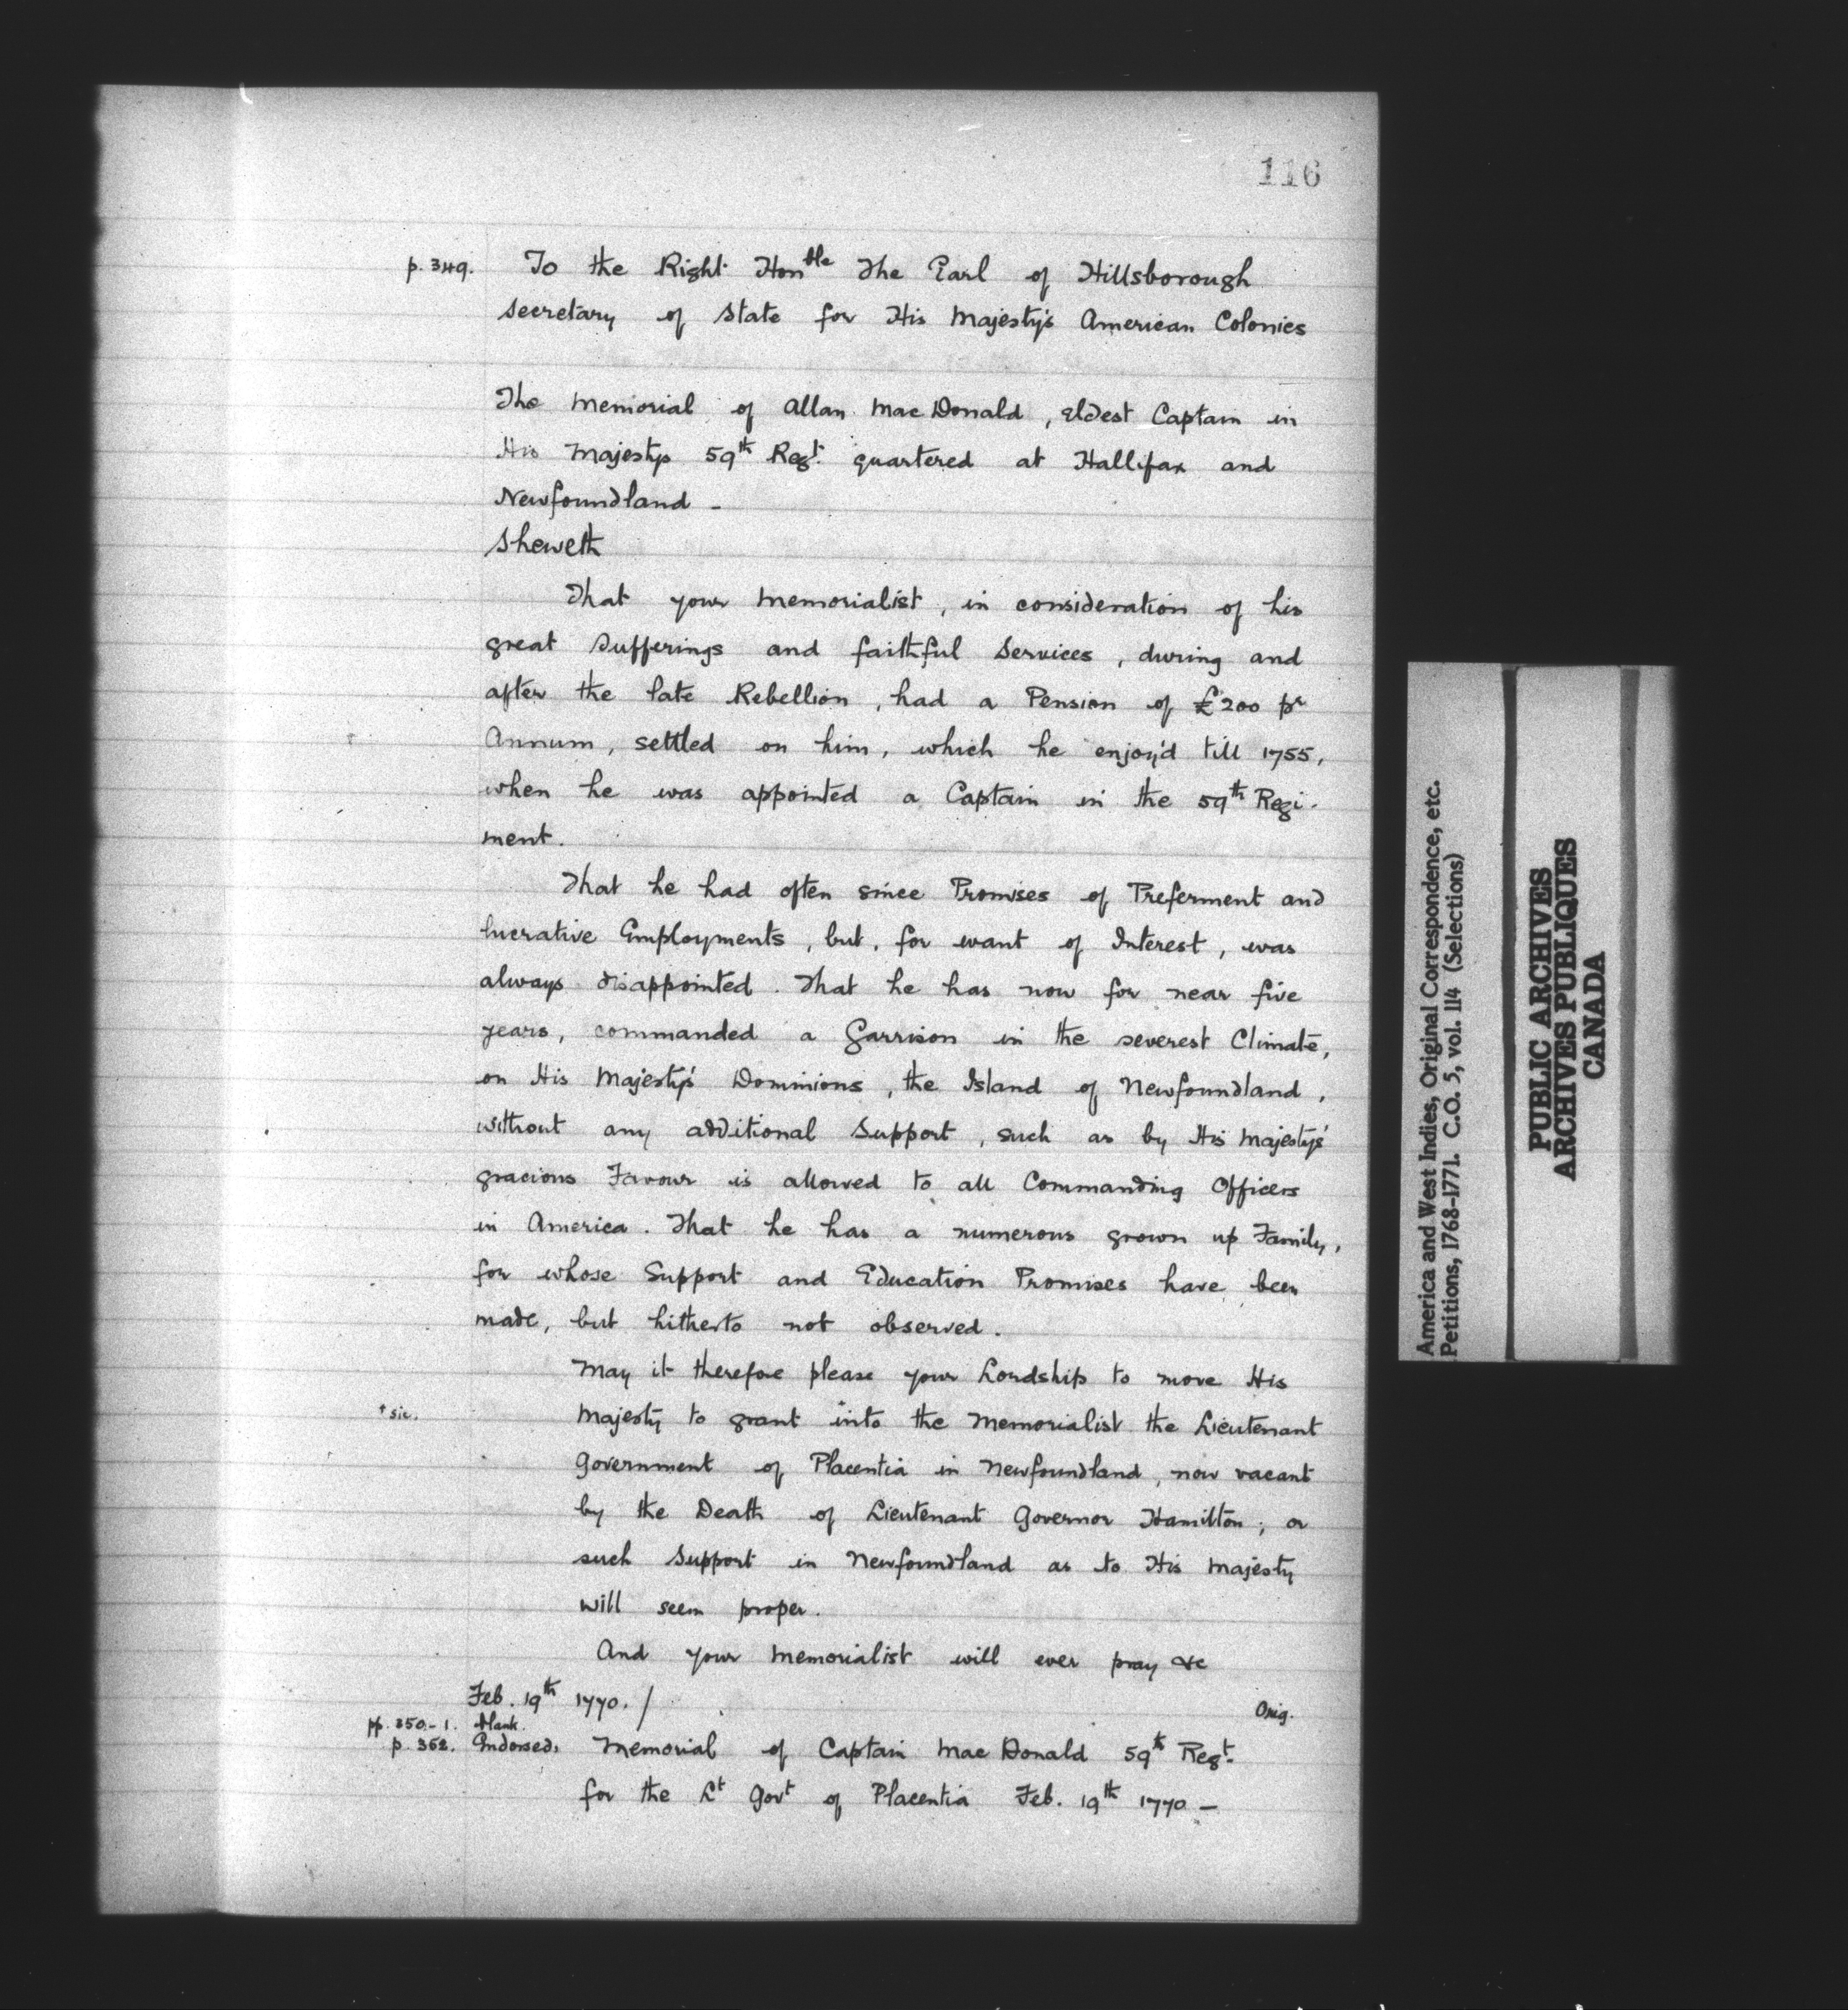 116
p. 349. To the Right Honble The Earl of Hillsborough
Secretary of State for His Majesty's American Colonies
The Memorial of Allan Mac Donald, Eldest Captain in
His Majestys 59th Regt. quartered at Hallifax and
Newfoundland -
Sheweth
That your Memorialist, in consideration of his
great Sufferings and faithful Services, during and
after the late Rebellion, had a Pension of £200 pr
Annum, settled on him, which he enjoy'd till 1755,
when he was appointed a Captain in the 59th Regi-
ment.
That he had often since Promises of Preferment and
lucrative Employments, but, for want of Interest, was
always disappointed. That he has now for near five
years, commanded a Garrison in the severest Climate,
on His Majesty's Dominions, the Island of Newfoundland,
without any additional Support, such as by His Majestys'
gracious Favour is allowed to all Commanding Officers
in America. That he has a numerous grown up Family,
for whose Support and Education Promises have been
made, but hitherto not observed.
May it therefore please your Lordship to move His
† sic. Majesty to grant †into the Memorialist the Lieutenant
Government of Placentia in Newfoundland, now vacant
by the Death of Lieutenant Governor Hamilton; or
such Support in Newfoundland as to His Majesty
will seem proper.
And your Memorialist will ever pray &c
Feb. 19th 1770. /
Orig.
pp. 350-1. blank.
p. 352. Endorsed, Memorial of Captain Mac Donald 59th Regt.
for the Lt Govt of Placentia Feb. 19th 1770 -
America and West Indies, Original Correspondence, etc.
Petitions, 1768-1771. C.O. 5, vol. 114 (Selections)
PUBLIC ARCHIVES
ARCHIVES PUBLIQUES
CANADA